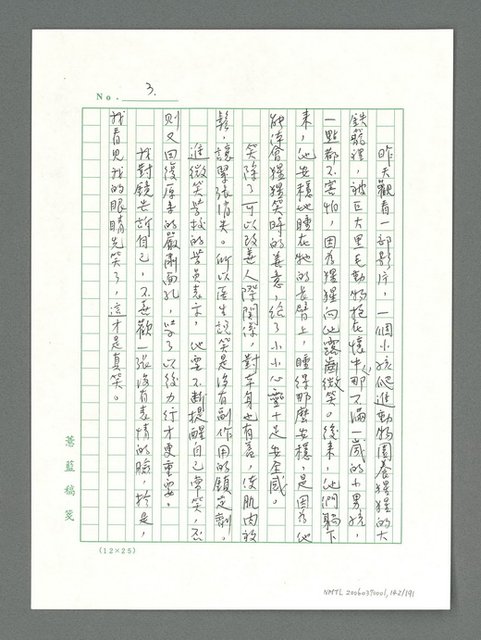 No. 3.
昨天觀看一部影片，一個小孩爬進動物園養猩猩的大
鐵籠裡，被巨大黑毛動物抱在懷中，那不滿一歲的小男孩，
一點都不害怕，因為猩猩向他露齒微笑。後來，他們躺下
來，他安穩地睡在牠的長臂上，睡得那麼安穩，是因為他
能體會猩猩笑時的善意，給了小小心靈十足安全感。
笑除了可以改善人際關係，對本身也有益，使肌肉放
鬆，讓緊張消失。所以醫生說笑是沒有副作用的鎮定劑。
進微笑學校的學員表示，他要不斷提醒自己要笑，否
則又回復原來的嚴肅面孔，學了以後力行才更重要。
我對鏡去訴自己，不喜歡一張沒有表情的臉，於是，
我看見我的眼睛先笑了，這才是真笑。
薔藍稿箋
(12×25)
NMTL 20060390001,142/191